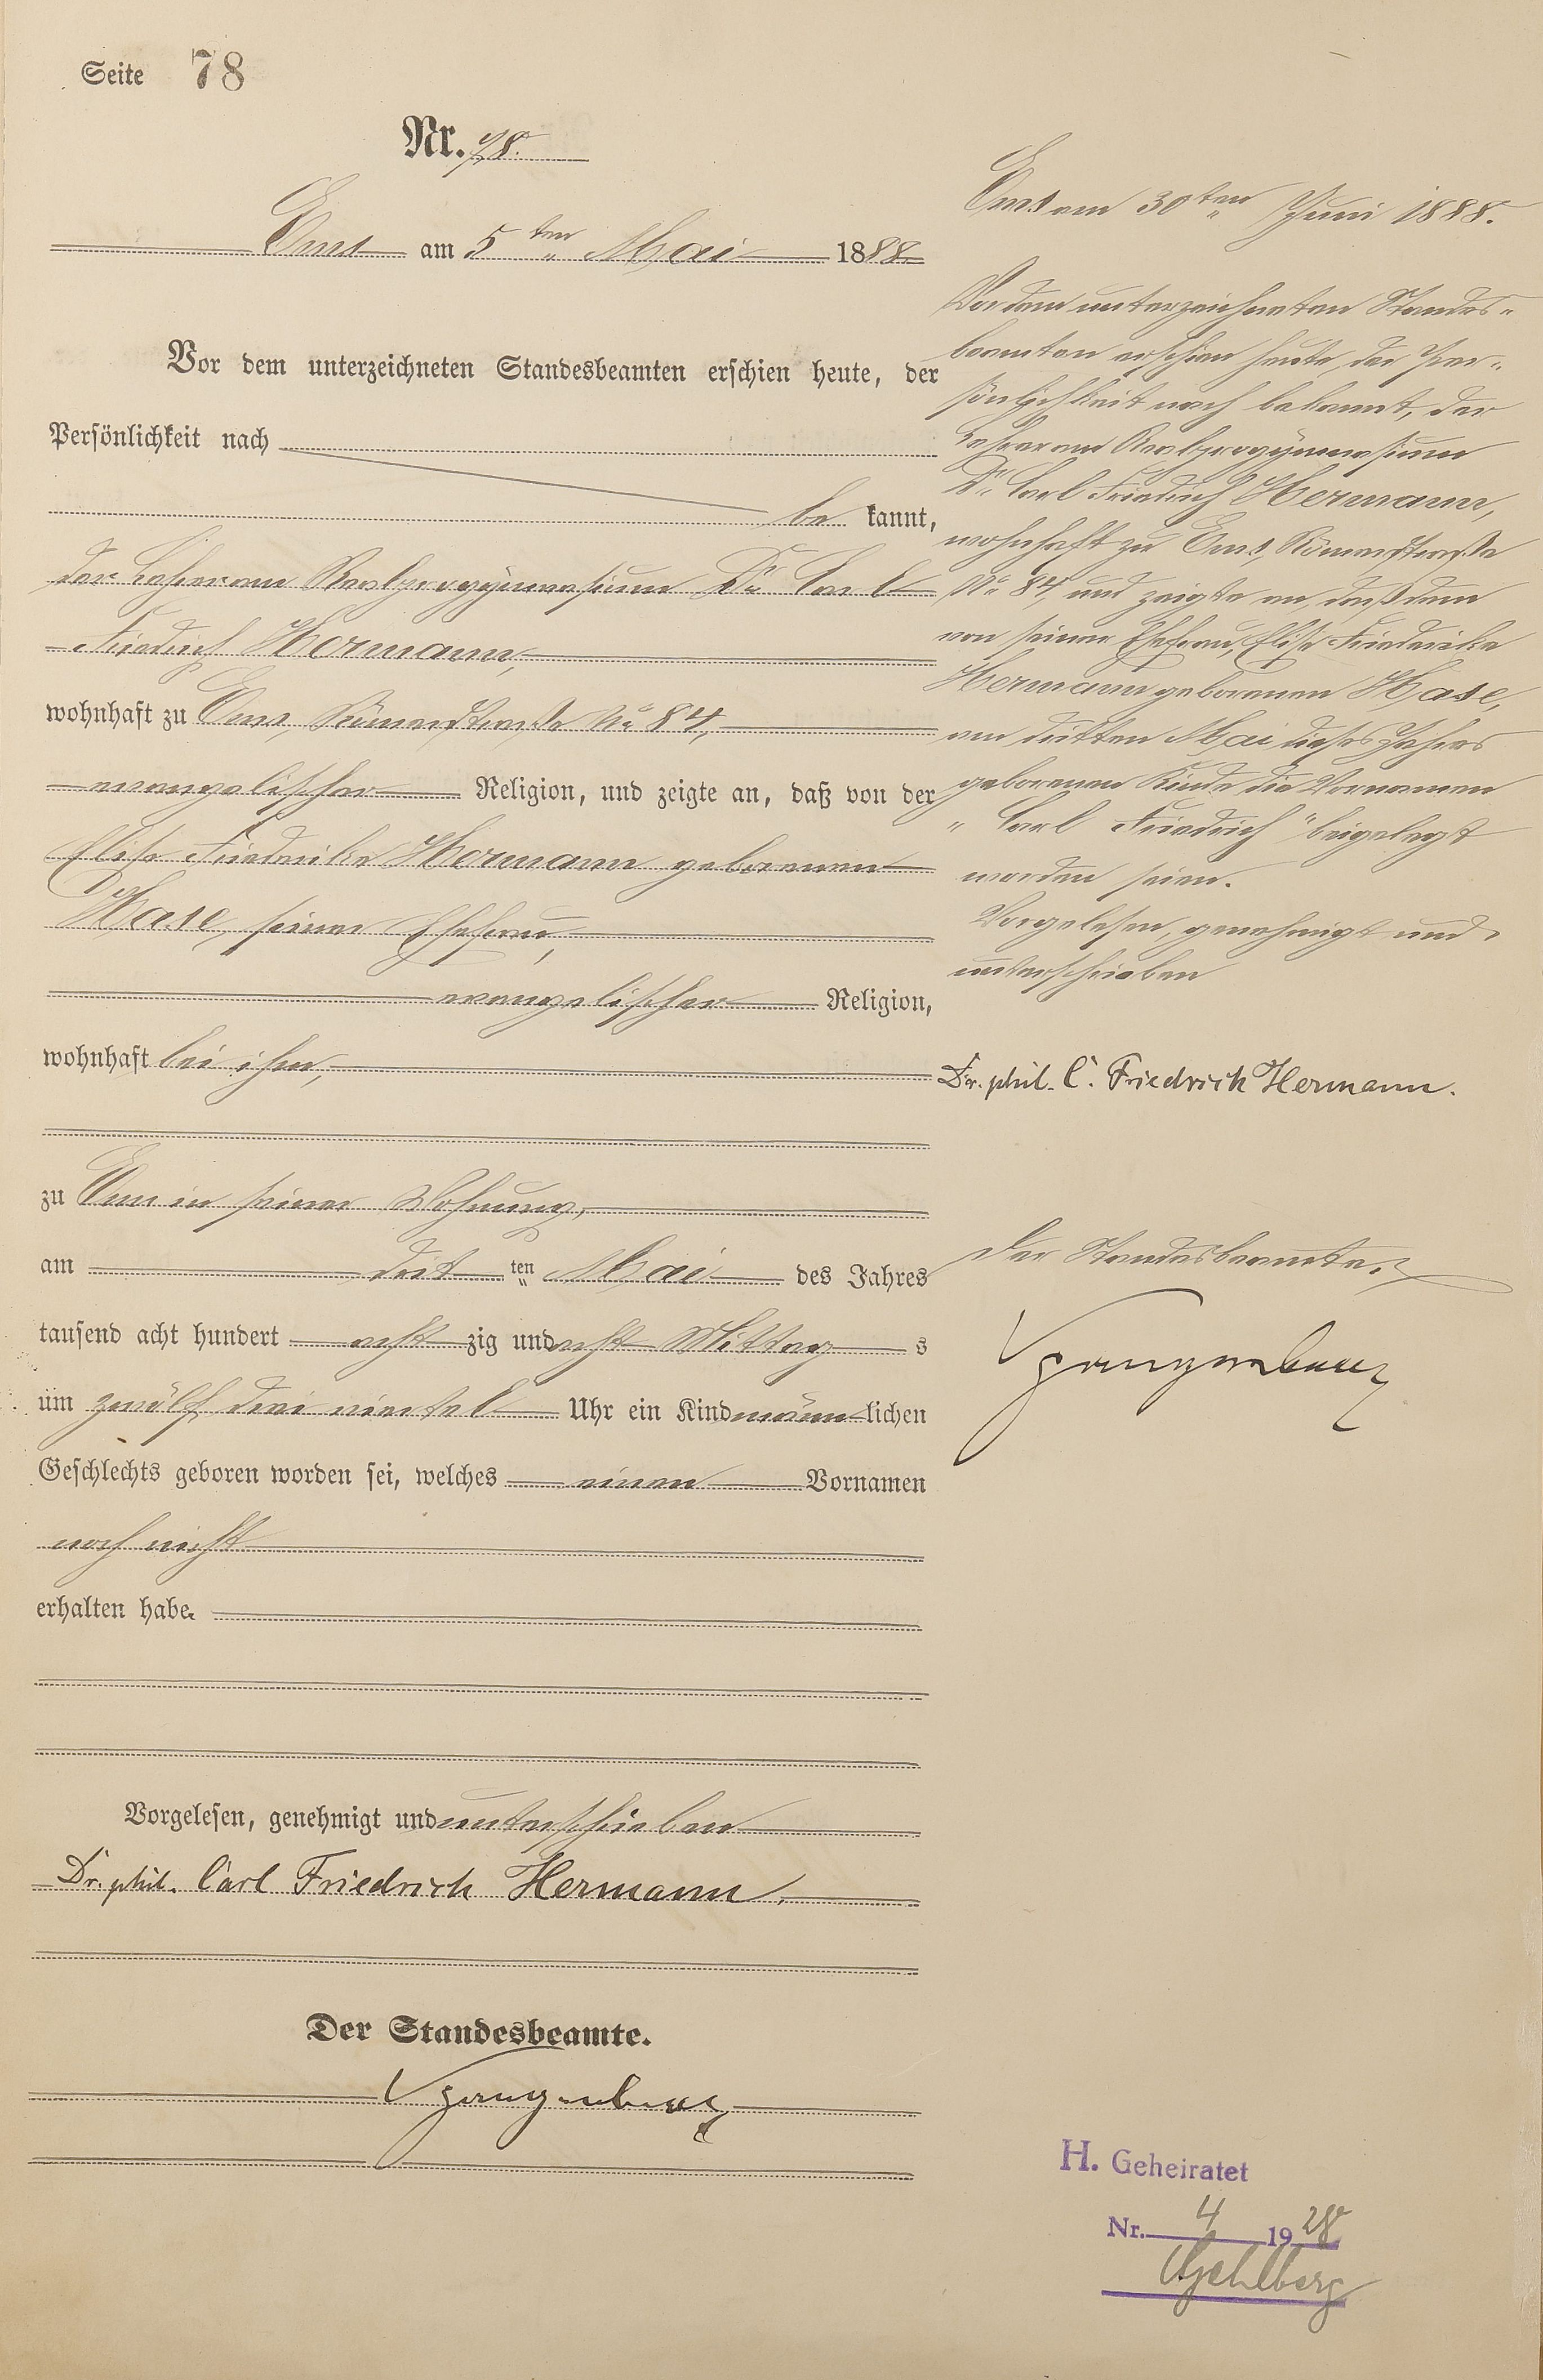 Seite 78
Nr. 78.
Ems am 5ten Mai 1888.
Vor dem unterzeichneten Standesbeamten erschien heute, der
Persönlichkeit nach
be kannt,
der Lehrer am Realprogymnasium Dr. Carl
Friedrich Hermann,
wohnhaft zu Ems, Römerstraße No. 84,
evangelischer Religion, und zeigte an, daß von der
Elise Friederike Hermann geborenen
Hase, seiner Ehefrau,
evangelischer Religion,
wohnhaft bei ihm,
zu Ems in seiner Wohnung,
am dritten Mai des Jahres
tausend acht hundert acht zig und acht Mittag s
um zwölf drei viertel Uhr ein Kind männlichen
Geschlechts geboren worden sei, welches einen Vornamen
noch nicht
erhalten habe.
Vorgelesen, genehmigt und unterschrieben
Dr. phil. Carl Friedrich Hermann.
Der Standesbeamte.
Ems am 30ten Juni 1888.
Vor dem unterzeichneten Standes-
beamten erschien heute, der Per-
sönlichkeit nach bekannt, der
Lehrer am Realprogymnasium
Dr. Carl Friedrich Hermann,
wohnhaft zu Ems, Römerstraße
No. 84, und zeigte an, daß dem
von seiner Ehefrau, Elise Friederike
Hermann geborenen Hase,
am dritten Mai dieses Jahres
geborenen Kinde die Vornamen
"Carl Friedrich" beigelegt
worden seien.
Vorgelesen, genehmigt und
unterschrieben
Dr. phil. C. Friedrich Hermann.
Der Standesbeamte.
H. Geheiratet
Nr. 4 1928
Gehlberg